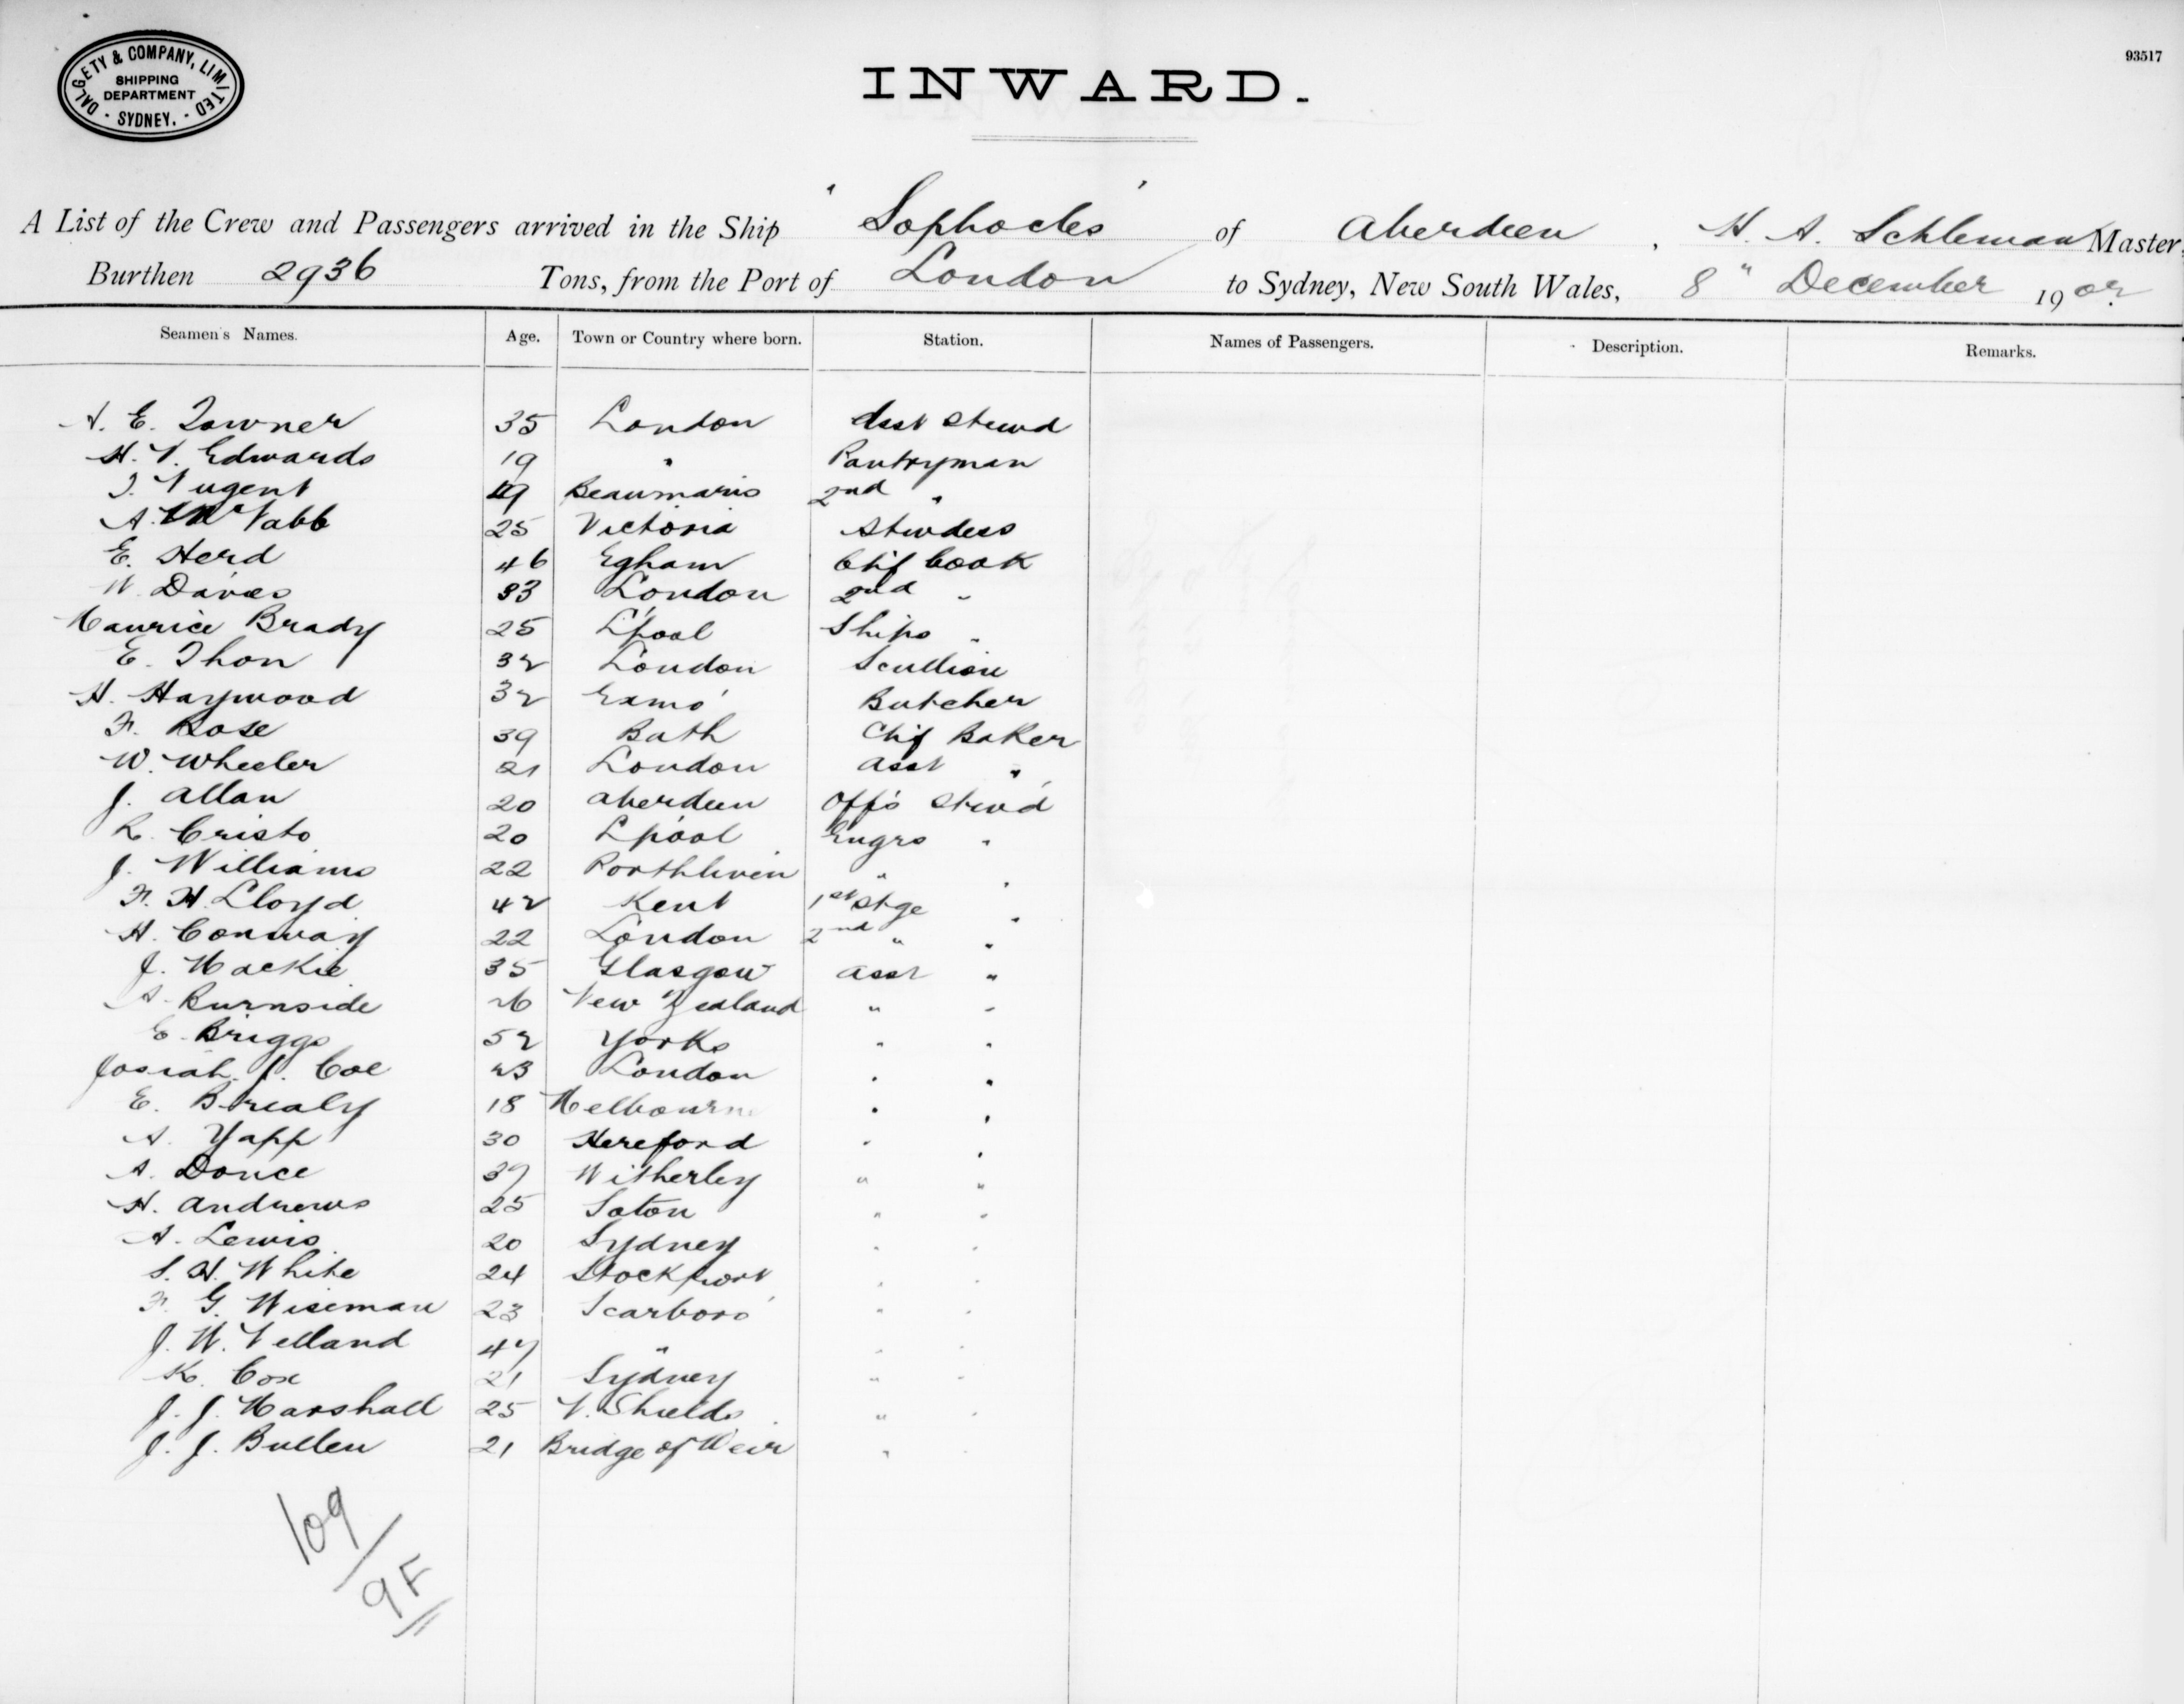 DALGETY & COMPANY, LIMITED
SHIPPING
DEPARTMENT
- SYDNEY. -
93517
INWARD.
A List of the Crew and Passengers arrived in the Ship "Sophocles" of Aberdeen, H. A. Schleman Master,
Burthen 2936 Tons, from the Port of London to Sydney, New South Wales, 8" December 1902
Seamen's Names. Age. Town or Country where born. Station. Names of Passengers. Description. Remarks.
A. E. Towner 35 London Asst Stewd
H. V. Edwards 19 " Pantryman
J. Nugent 19 Beaumaris 2nd "
A. McNabb 25 Victoria Stwdess
E. Herd 46 Egham Chf Cook
W. Davies 33 London 2nd "
Maurice Brady 25 L'pool Ships "
E. Thon 32 London Scullion
H. Haywood 32 Exmo' Butcher
F. Rose 39 Bath Chf Baker
W. Wheeler 21 London Asst "
J. Allan 20 Aberdeen Offs Stwd
R. Cristo 20 L'pool Engrs "
J. Williams 22 Porthleven " "
F. H. Lloyd 42 Kent 1st Stge "
H. Conway 22 London 2nd " "
J. Mackie 35 Glasgow Asst "
A. Burnside 26 New Zealand " "
E. Briggs 52 Yorks " "
Josiah J. Coe 23 London " "
E. Brealy 18 Melbourne " "
A. Yapp 30 Hereford " "
A. Douce 37 Witherley " "
H. Andrews 25 Soton " "
A. Lewis 20 Sydney " "
S. H. White 24 Stockport " "
F. G. Wiseman 23 Scarboro' " "
J. W. Velland 47 " " "
K. Cox 21 Sydney " "
J. J. Marshall 25 N. Shields " "
J. J. Bullen 21 Bridge of Weir " "
109
9F